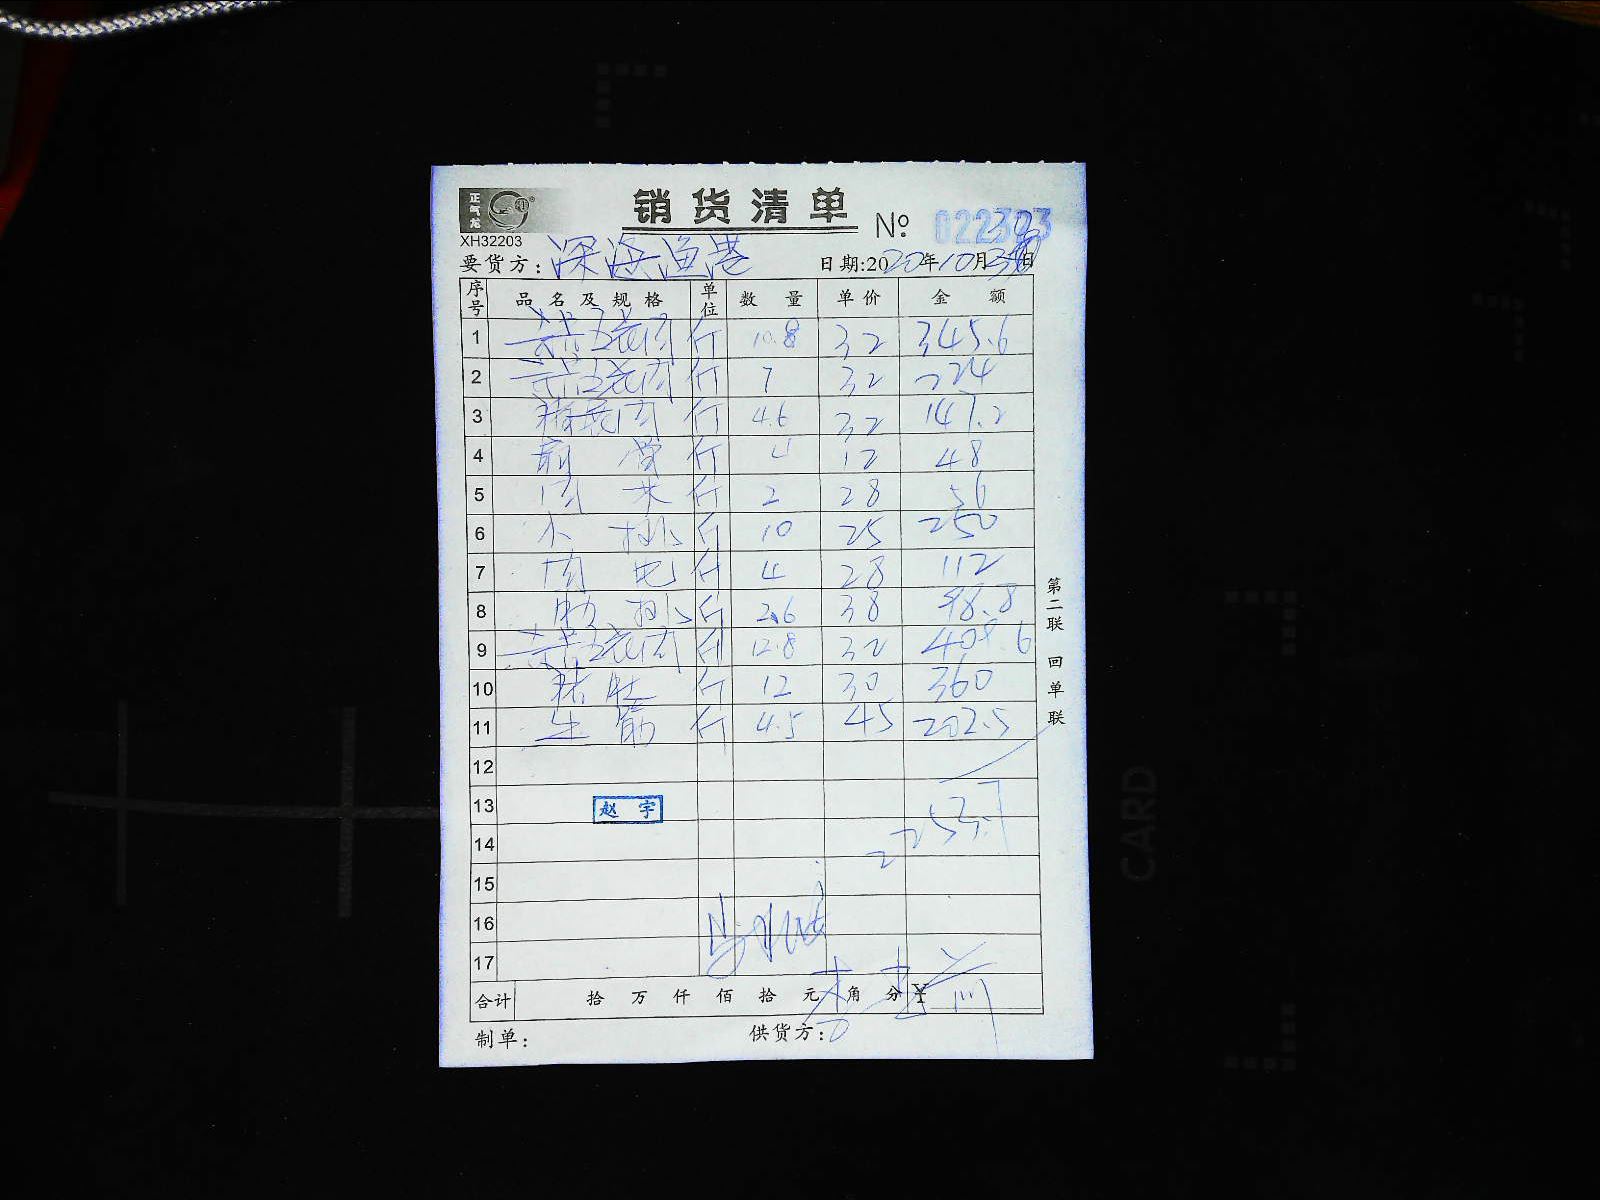 正气龙
销货清单
XH32203
№ 022323
要货方: 深海渔港
日期:2020年10月 日
序号 品名及规格 单位 数量 单价 金额
1 五花肉 斤 10.8 32 345.6
2 五花肉 斤 7 32 224
3 精瘦肉 斤 4.6 32 147.2
4 前 斤 4 12 48
5 肉 斤 2 28 56
6 小排 斤 10 25 250
7 肉 斤 4 28 112
8 肋排 斤 2.6 38 98.8
9 五花肉 斤 12.8 32 409.6
10 猪肚 斤 12 30 360
11 牛筋 斤 4.5 45 202.5
12
13 赵宇
2253.7
14
15
16
17
合计 拾 万 仟 佰 拾 元 角 分 ¥
制单:
供货方:
第二联 回单联
CARD